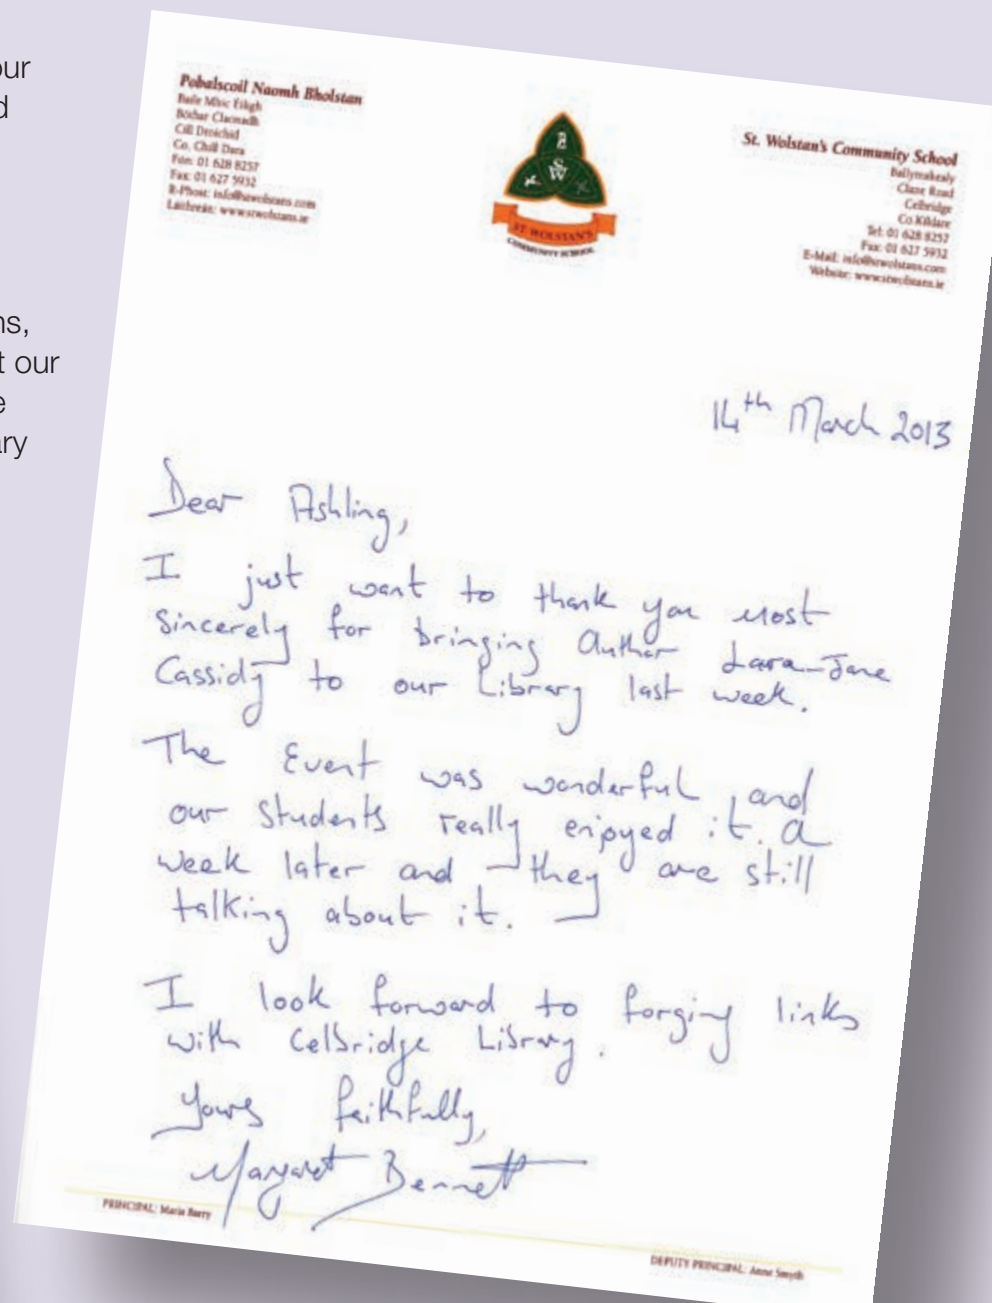 our
d
ns,
t our
e
ary
Pobalscoil Naomh Bholstan
Baile Mhic Éiligh
Bóthar Claonadh
Cill Droichid
Co. Chill Dara
Fón: 01 628 8257
Fax: 01 627 5932
R-Phost: info@stwolstans.com
Laithreán: www.stwolstans.ie
SW
ST WOLSTAN'S
COMMUNITY SCHOOL
St. Wolstan's Community School
Ballymakealy
Clane Road
Celbridge
Co Kildare
Tel: 01 628 8257
Fax: 01 627 5932
E-Mail: info@stwolstans.com
Website: www.stwolstans.ie
14th March 2013
Dear Ashling,
I just want to thank you most
Sincerely for bringing Author Lara-Jane
Cassidy to our Library last week.
The Event was wonderful, and
our Students really enjoyed it. A
week later and they are still
talking about it.
I look forward to forging links
with Celbridge Library.
Yours faithfully,
Margaret Bennett
PRINCIPAL: Maria Barry
DEPUTY PRINCIPAL: Anne Smyth